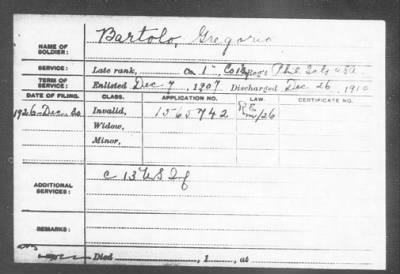 NAME OF SOLDIER: Bartolo, Gregorio
SERVICE: Late rank, Co 1", Co Reg't Phil Scts USA
TERM OF SERVICE: Enlisted Dec 7, 1907 Discharged Dec 26, 1910
DATE OF FILING. CLASS. APPLICATION NO. LAW CERTIFICATE NO.
1926-Dec. 20 Invalid, 1565742 /26
Widow,
Minor,
ADDITIONAL SERVICES: C 13" US Inf
REMARKS:
Died , 1 , at